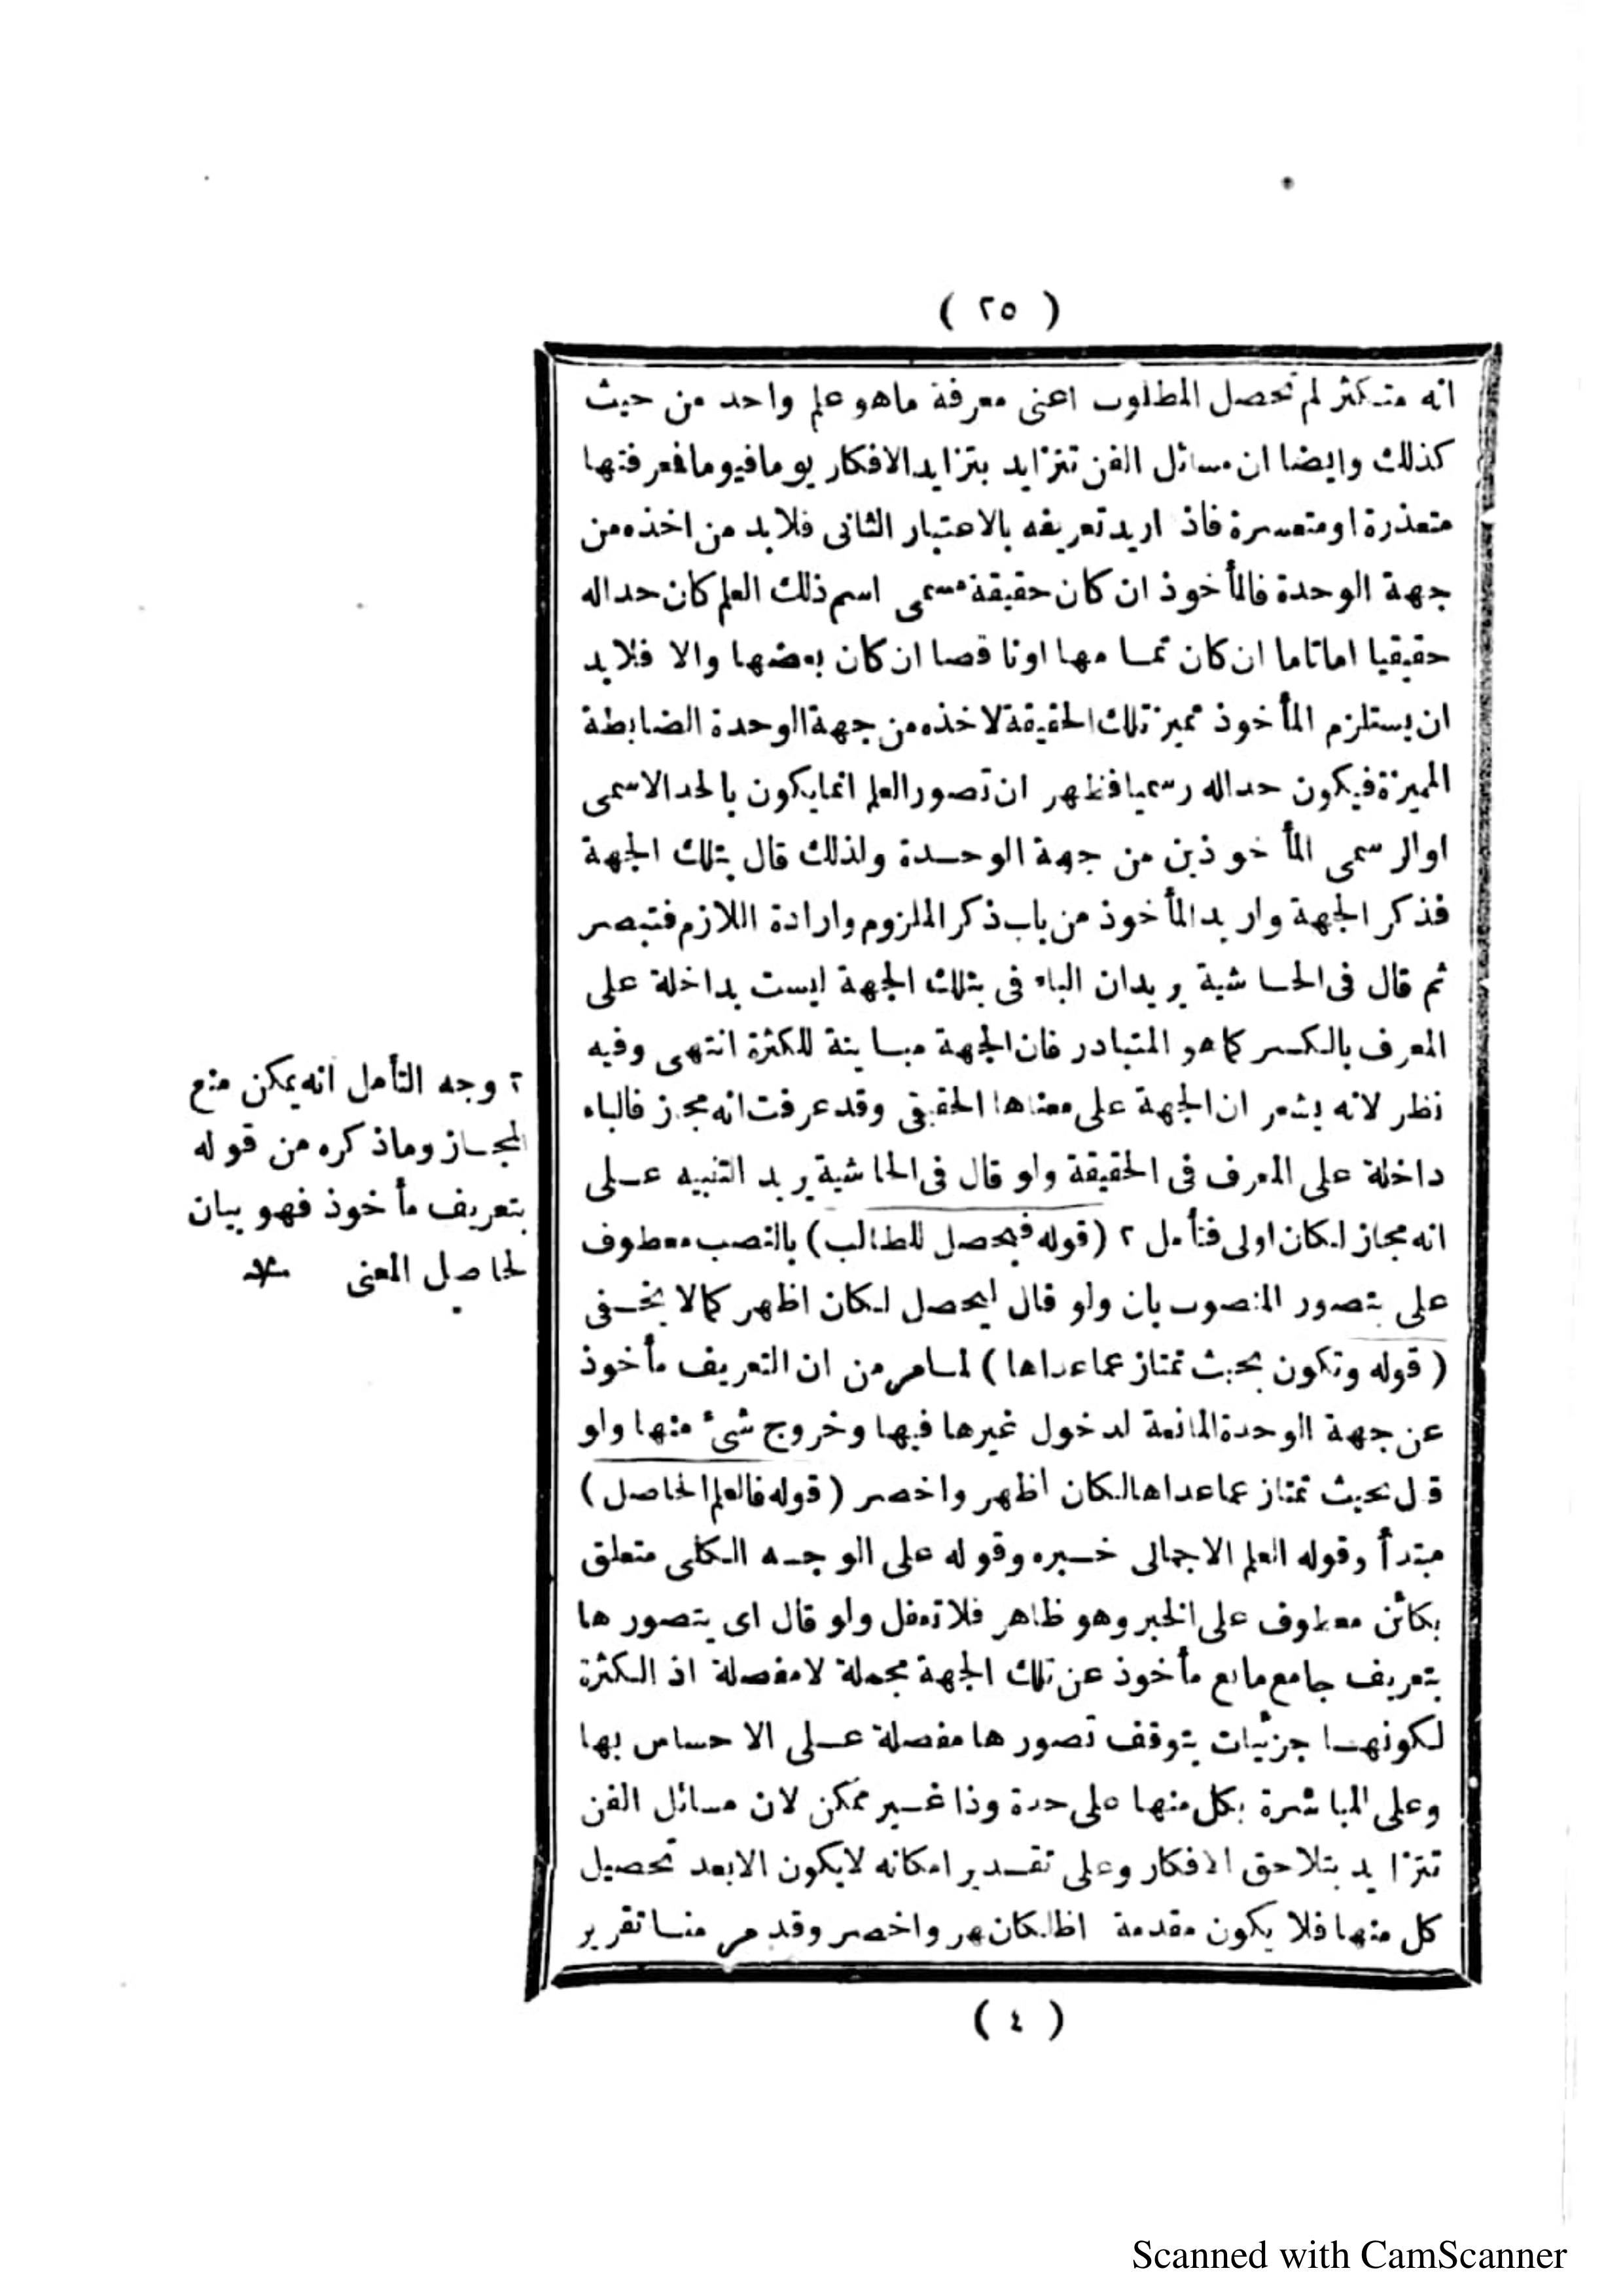 ( ٢٥ )
انه متكثر لم تحصل المطلوب اعنى معرفة ماهو علم واحد من حيث
كذلك وايضا ان مسائل الفن تتزايد بتزايد الافكار يوما فيوما فمعرفتها
متعذرة او متعسرة فاذ اريد تعريفه بالاعتبار الثانى فلا بد من اخذه من
جهة الوحدة فالمأخوذ ان كان حقيقة مسمى اسم ذلك العلم كان حداله
حقيقيا اما تاما ان كان تمامها او ناقصا ان كان بعضها والا فلابد
ان يستلزم المأخوذ تميز تلك الحقيقة لاخذه من جهة الوحدة الضابطة
المميزة فيكون حداله رسميا فظهر ان تصور العلم انمايكون بالحد الاسمى
او الرسمى المأخوذين من جهة الوحدة ولذلك قال بتلك الجهة
فذكر الجهة واريد المأخوذ من باب ذكر الملزوم وارادة اللازم فتبصر
ثم قال فى الحاشية يريدان الباء فى بتلك الجهة ليست بداخلة على
المعرف بالكسر كما هو المتبادر فان الجهة مباينة للكثرة انتهى وفيه
نظر لانه يشعر ان الجهة على معناها الحقيقى وقد عرفت انه مجاز فالباء
داخلة على المعرف فى الحقيقة ولو قال فى الحاشية يريد التنبيه على
انه مجاز لكان اولى فتأمل ٢ (قوله فيحصل للطالب) بالنصب معطوف
على يتصور المنصوب بان ولو قال ليحصل لكان اظهر كمالا يخفى
(قوله وتكون بحيث تمتاز عماعداها) لمامر من ان التعريف مأخوذ
عن جهة الوحدة المانعة لدخول غيرها فيها وخروج شئ منها ولو
قال بحيث تمتاز عماعداها لكان اظهر واخصر (قوله فالعلم الحاصل)
مبتدأ وقوله العلم الاجمالى خبره وقوله على الوجه الكلى متعلق
بكائن معطوف على الخبر وهو ظاهر فلا تغفل ولو قال اى يتصورها
بتعريف جامع مانع مأخوذ عن تلك الجهة مجملة لامفصلة اذ الكثرة
لكونها جزئيات يتوقف تصورها مفصلة على الاحساس بها
وعلى المباشرة بكل منها على حدة وذا غير ممكن لان مسائل الفن
تتزايد بتلاحق الافكار وعلى تقدير امكانه لايكون الابعد تحصيل
كل منها فلا يكون مقدمة اظالكان هر واخصر وقد مر منا تقرير
( ٤ )
٢ وجه التأمل انه يمكن منع
المجاز وماذكره من قوله
بتعريف مأخوذ فهو بيان
لحاصل المعنى
Scanned with CamScanner